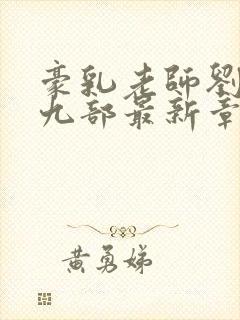 豪乳老師劉
九部最新章
黃勇娣